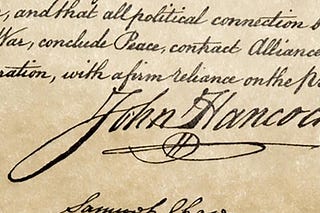 , and that all political connection b
War, conclude Peace, contract Alliance
ration, with a firm reliance on the pr
John Hancoc
Samuel Chase